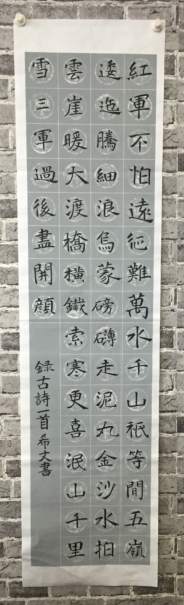 紅軍不怕遠征難萬水千山祇等閒五嶺
逶迤騰細浪烏蒙磅礴走泥丸金沙水拍
雲崖暖大渡橋橫鐵索寒更喜岷山千里
雪三軍過後盡開顔
録古詩一首希文書